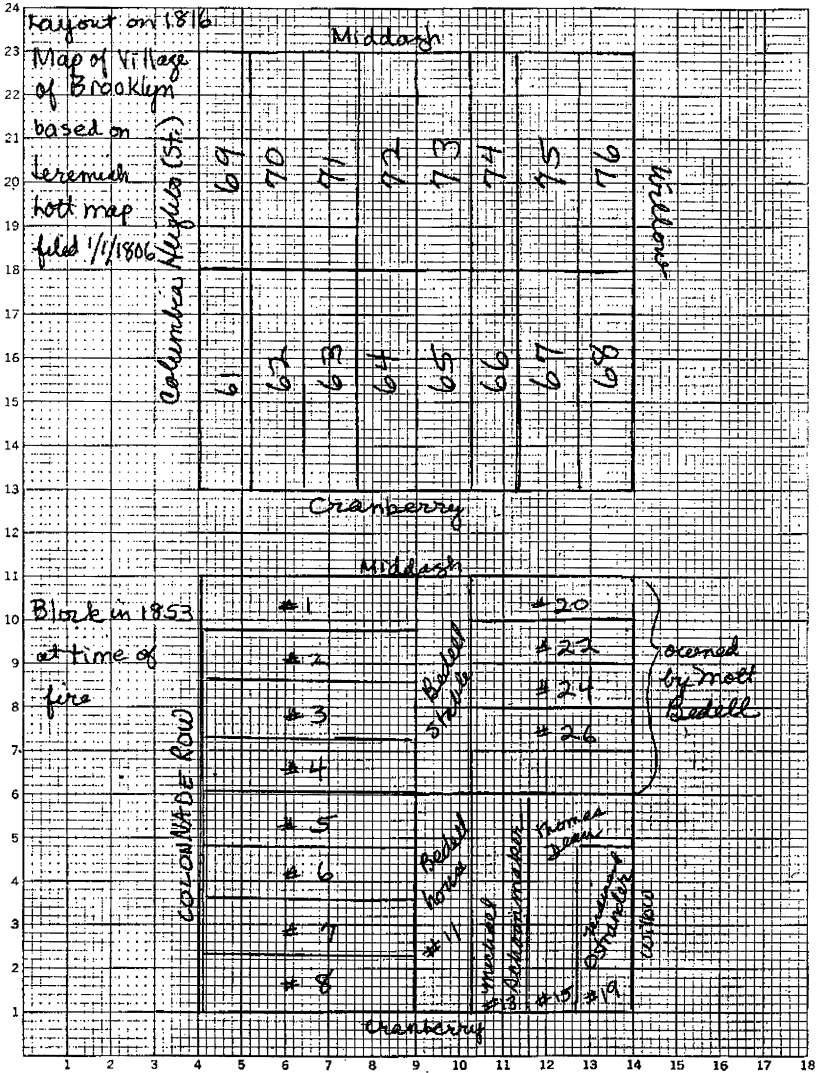 Layout on 1816
Map of Village
of Brooklyn
based on
Jeremiah
Lott map
filed 1/1/1806
Middagh
Columbia Heights (St.)
69 70 71 72 73 74 75 76
Willow
61 62 63 64 65 66 67 68
Cranberry
Middagh
Block in 1853
at time of
fire
COLONNADE ROW
#1
#2
#3
#4
#5
#6
#7
#8
Bedell
stable
#20
#22
#24
#26
owned
by Mott
Bedell
Bedell
house
#11
Schoonmaker
#13
Thomas
Dean
#15
Ostrander
#19
Willow
Cranberry
24
23
22
21
20
19
18
17
16
15
14
13
12
11
10
9
8
7
6
5
4
3
2
1
1 2 3 4 5 6 7 8 9 10 11 12 13 14 15 16 17 18